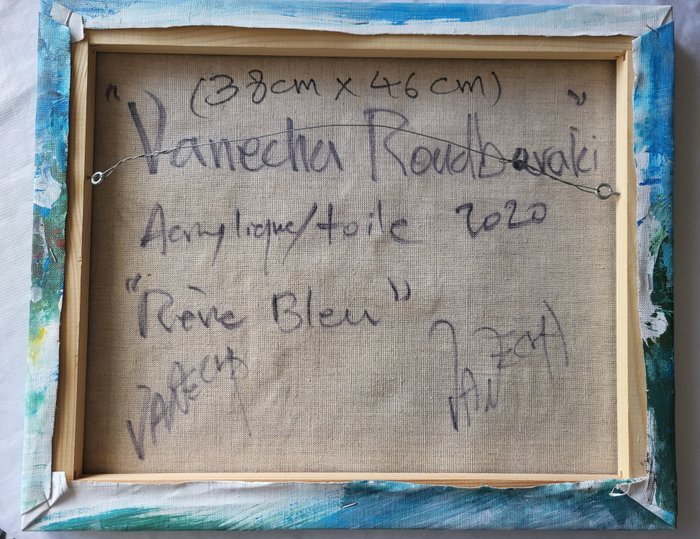 (38cm x 46cm)
"Vanecha Roudbaraki"
Acrylique/toile 2020
"Rêve Bleu"
VANECHA
VANECHA